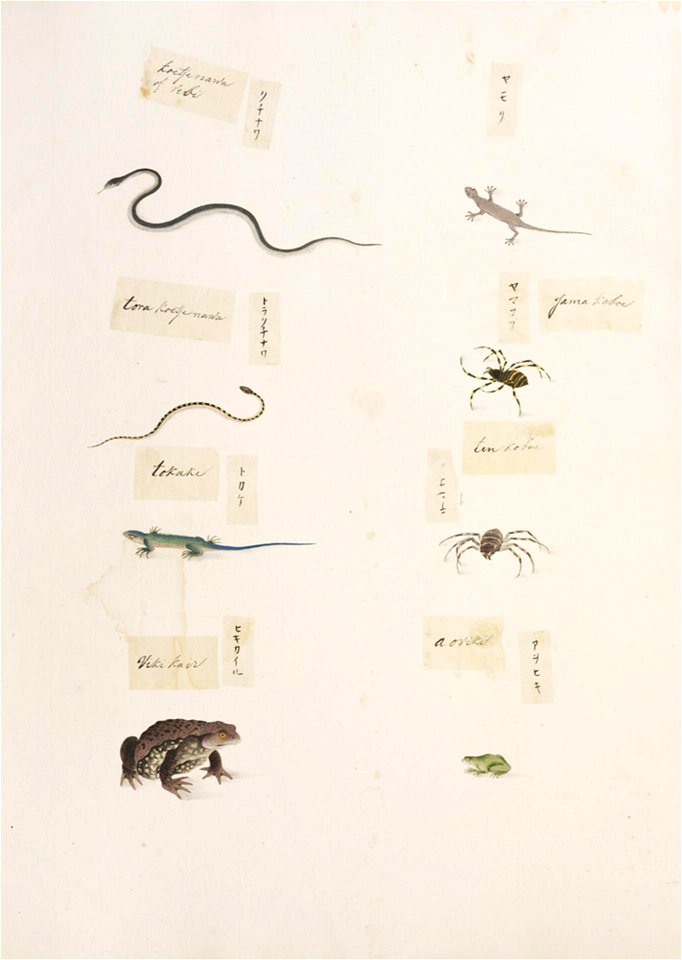 koetjenawa
of Vebi
クチナワ
ヤモリ
tora koetjenawa
トラクチナワ
ヤマコブ
Jama koboe
tokake
トカケ
ten koboe
Vikikair
ヒキカイル
aoviki
アヲヒキ